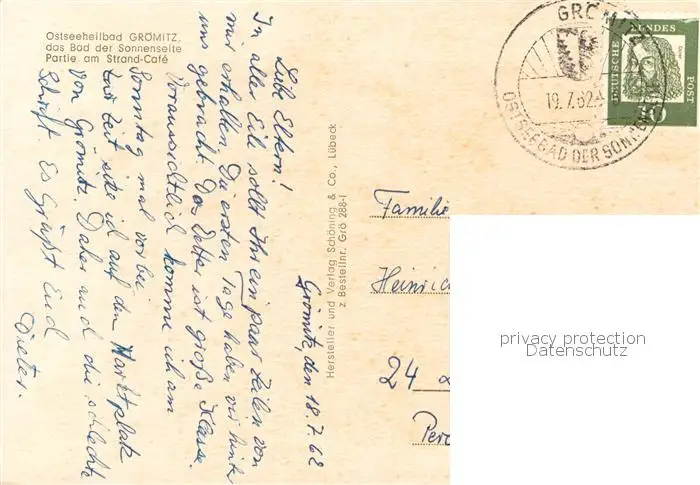 Ostseeheilbad GRÖMITZ,
das Bad der Sonnenseite
Partie am Strand-Café
Grömitz, den 18.7.62
Liebe Eltern!
In aller Eile sollt Ihr ein paar Zeilen von
mir erhalten. Die ersten Tage haben wir hinter
uns gebracht. Das Wetter ist große Klasse.
Voraussichtlich komme ich am
Sonntag mal vorbei.
Zur Zeit sitze ich auf den Marktplatz
von Grömitz. Daher auch die schlechte
Schrift. Es grüßt Euch
Dieter.
Hersteller und Verlag Schöning & Co., Lübeck
z Bestellnr. Grö 288-I
GRÖMITZ
19.7.62
OSTSEEBAD DER SONNENSEITE
DEUTSCHE BUNDESPOST
10
Familie
Heinric
24
privacy protection
Datenschutz